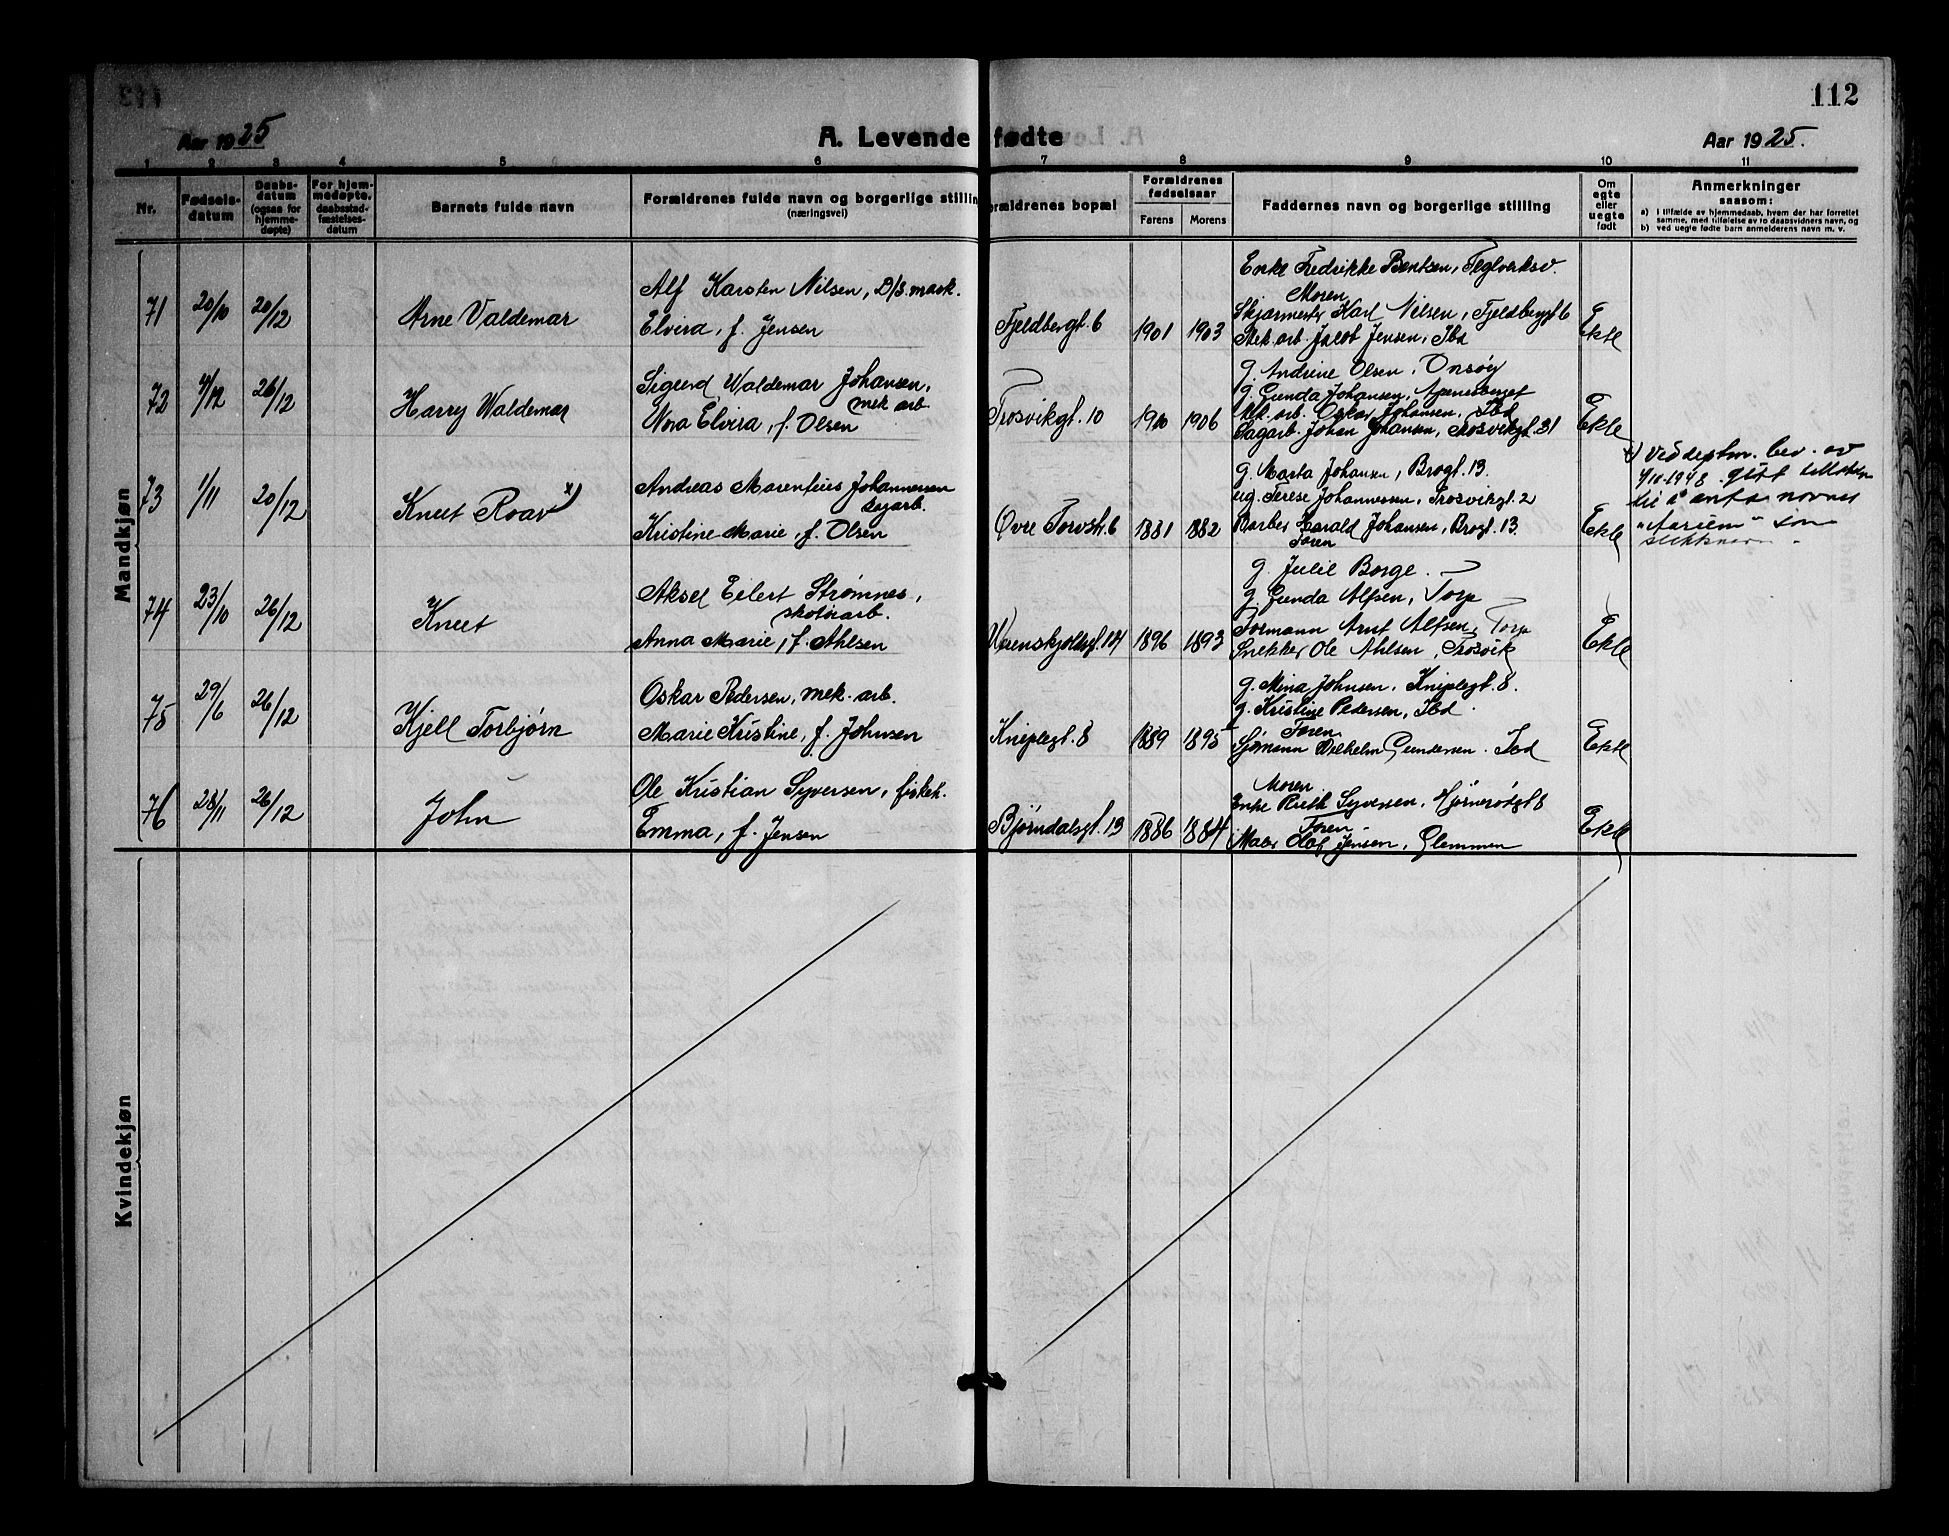 112
Aar 1925
A. Levende fødte
Aar 1925.
1 2 3 4 5 6 7 8 9 10 11
Nr.
Fødsels-
datum
Daabs-
datum
(ogsaa for
hjemme-
døpte)
For hjem-
medøpte,
daabsstad-
fæstelses-
datum
Barnets fulde navn
Forældrenes fulde navn og borgerlige stilling
(næringsvei)
Forældrenes bopæl
Forældrenes
fødselsaar
Farens Morens
Faddernes navn og borgerlige stilling
Om
egte
eller
uegte
født
Anmerkninger
saasom:
a) I tilfælde av hjemmedaab, hvem der har forrettet
samme, med tilføielse av to daabsvidners navn, og
b) ved uegte fødte barn anmelderens navn m. v.
Mandkjøn
71 20/10 20/12 Arne Valdemar
Alf Karsten Nilsen, D/S. mask.
Elvira, f. Jensen
Fjeldbergt. 6 1901 1903
Enke Fredrikke Bentsen, Teglverksv.
Moren
Skjærmester Karl Nilsen, Fjeldbergt 6
Mek. arb. Jacob Jensen, Ibd
Ekte
72 4/12 26/12 Harry Waldemar
Sigurd Waldemar Johansen,
mek arb.
Nora Elvira, f. Olsen
Trosvikgt. 10 1900 1906
g. Andrine Olsen, Onsøy
g. Gunda Johansen, Apenesberget
Mek. arb. Oskar Johansen, Ibd
Sagarb. Johan Johansen, Trosvikgt. 31
Ekte
73 1/11 20/12 Knut Roar x)
Andreas Marentius Johannessen
sagarb.
Kristine Marie, f. Olsen
Øvre Torvstr. 6 1881 1882
g. Marta Johansen, Brogt. 13.
ug. Terese Johannessen, Trosvikgt. 2
Barber Harald Johansen, Brogt. 13
Faren
Ekte
x) Ved deptm. bev. av
4/10-1948 gitt tillatelse
til å anta navnet
"Aarum" som
slektsnavn.
74 23/10 26/12 Knut
Aksel Eilert Strømnes,
skotøiarb.
Anna Marie, f. Ahlsen
Werenskjoldsgt. 14 1896 1893
g. Julie Borge.
g. Gunda Alfsen, Torp
Formann Arnt Alfsen, Torp
Snekker Ole Ahlsen, Trosvik
Ekte
75 29/6 26/12 Kjell Torbjørn
Oskar Pedersen, mek. arb.
Marie Kristine, f. Johnsen
Kniplegt. 8 1889 1895
g. Mina Johnsen, Kniplegt. 8.
g. Kristine Pedersen, Ibd.
Faren
Sjømann Vilhelm Gundersen. Ibd
Ekte
76 28/11 26/12 John
Ole Kristian Syversen, fiskeh.
Emma, f. Jensen
Bjørndalsgt. 13 1886 1884
Moren
Enke Ruth Syversen, Hjørnerødgt 8
Faren
Maler Olaf Jensen, Glemmen
Ekte
Kvindekjøn